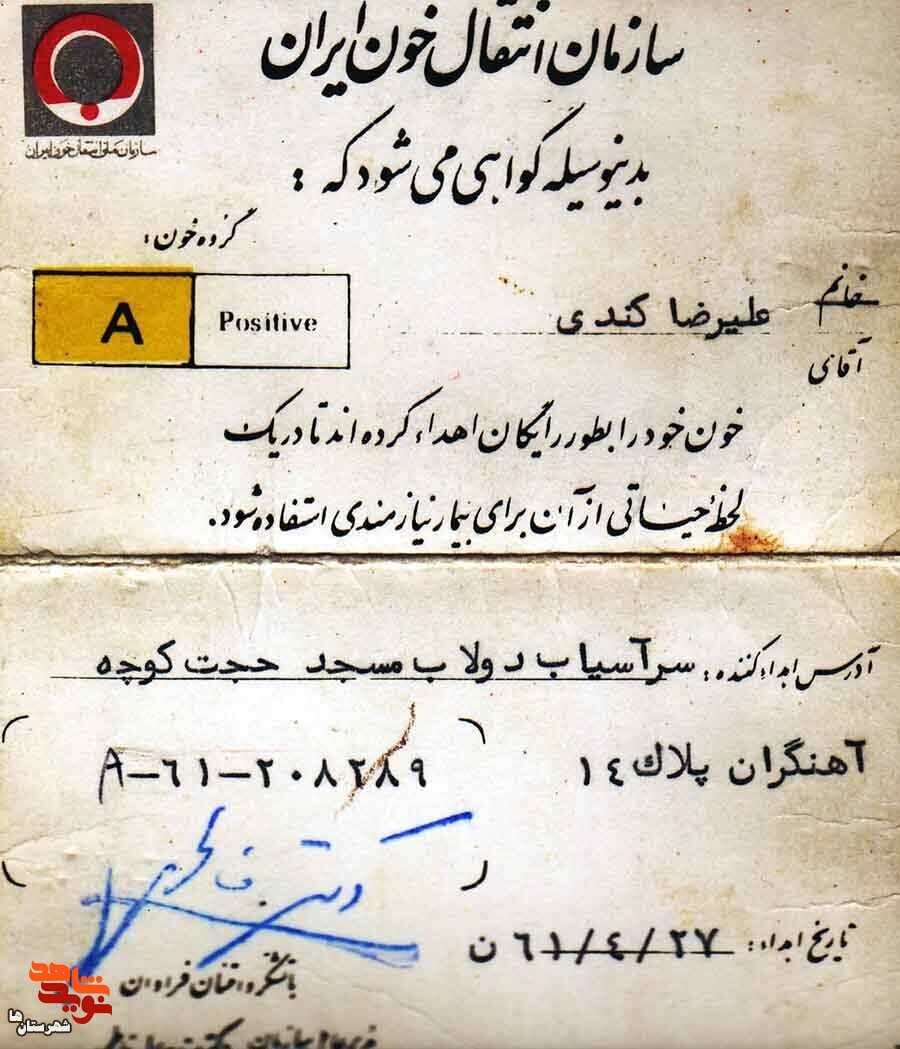 سازمان انتقال خون ایران
سازمان ملی انتقال خون ایران
بدینوسیله گواهی می شود که :
گروه خون :
A Positive
خانم
علیرضا کندی
آقای
خون خود را بطور رایگان اهداء کرده اند تا در یک
لحظهٔ حیاتی از آن برای بیمار نیازمندی استفاده شود.
آدرس اهداء کننده : سرآسیاب دولاب مسجد حجت کوچه
آهنگران پلاك ١٤
A-٦١-٢٠٨٢٨٩
دکتر
تاریخ اهداء : ٦١/٤/٢٧ ن
با تشکر و امتنان فراوان
نوید شاهد
شهرستان ها